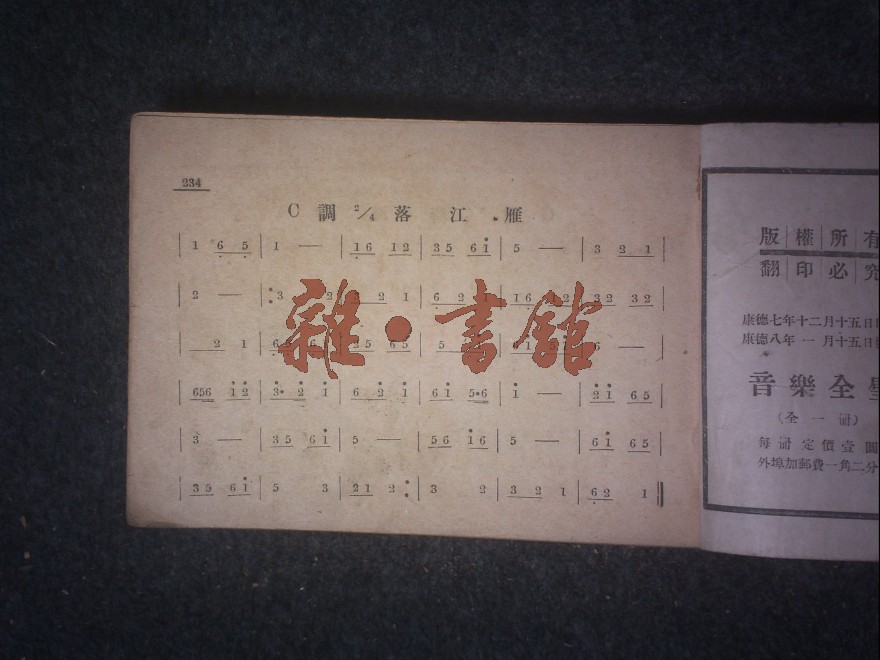 234
C 調 2/4 落 江 雁
| 1 6 5 | 1 — | 16 12 | 35 61 | 5 — | 3 2 1 |
2 — | 3 2 | 3 2 1 | 6 2 1 | 16 12 | 32 32 |
2 1 | 65 6 | 35 65 | 5 | 6 — |
| 656 12 | 3· 2 1 | 6 2 1 | 61 5·6 | 1 — | 21 65 |
| 3 — | 35 61 | 5 — | 56 16 | 5 — | 61 65 |
| 35 61 | 5 3 | 21 2 | 3 2 | 3 2 1 | 62 1 ||
雜·書館
版權所有
翻印必究
康德七年十二月十五日
康德八年一月十五日
音樂全
(全一冊)
每冊定價壹圓
外埠加郵費一角二分